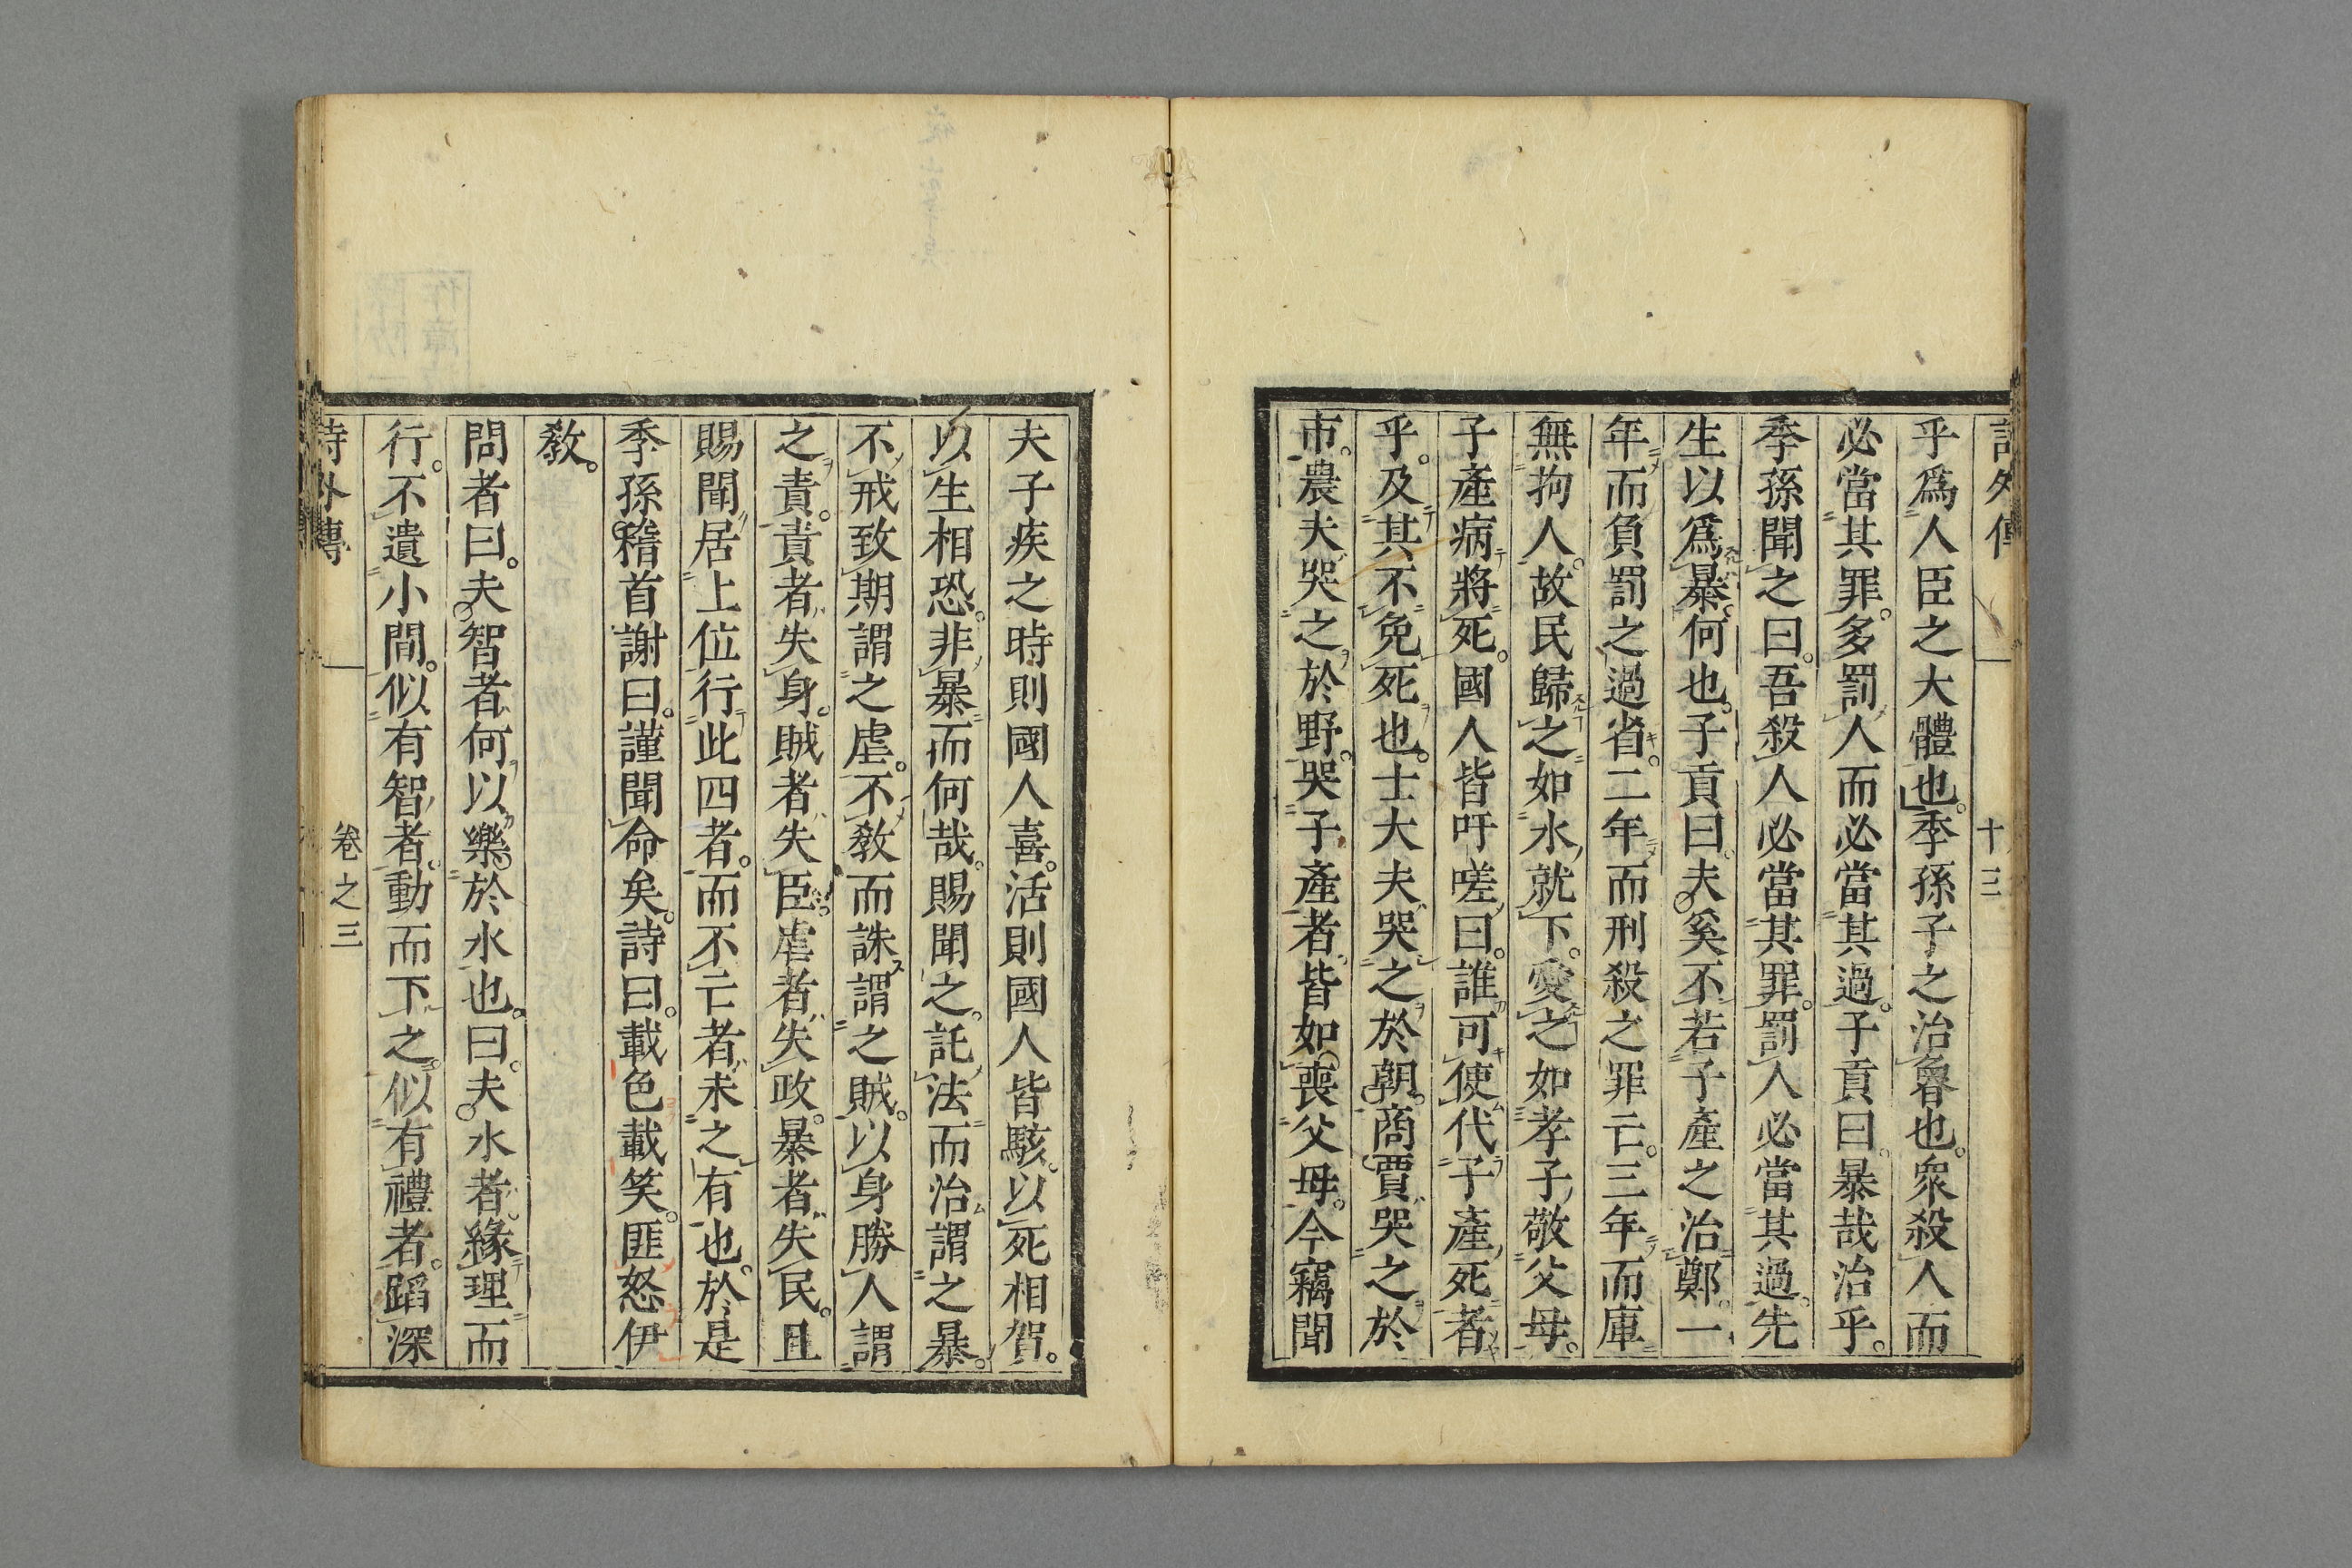 詩外傳 十三
乎爲人臣之大體也季孫子之治魯也。衆殺人而
必當其罪。多罰人而必當其過。子貢曰暴哉治乎。
季孫聞之曰。吾殺人必當其罪。罰人必當其過。先
生以爲暴。何也。子貢曰夫奚不若子產之治鄭。一
年而負罰之過省。二年而刑殺之罪亡。三年而庫
無拘人。故民歸之如水就下。愛之如孝子敬父母。
子產病將死。國人皆吁嗟曰。誰可使代子產死者
乎。及其不免死也。士大夫哭之於朝。商賈哭之於
市。農夫哭之於野。哭子產者皆如喪父母。今竊聞
夫子疾之時則國人喜。活則國人皆駭。以死相賀。
以生相恐。非暴而何哉。賜聞之。託法而治謂之暴。
不戒致期謂之虐。不敎而誅謂之賊。以身勝人謂
之責。責者失身。賊者失臣虐者失政。暴者失民。且
賜聞居上位行此四者。而不亡者未之有也。於是
季孫稽首謝曰。謹聞命矣。詩曰。載色載笑。匪怒伊
敎。
問者曰。夫智者何以樂於水也。曰。夫水者緣理而
行。不遺小間。似有智者。動而下之。似有禮者。蹈深
詩外傳 卷之三